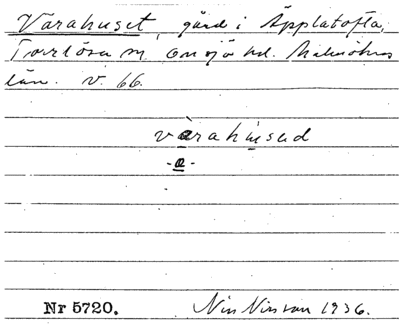 Varahuset, gård i Äpplatofta,
Torrlösa sn. Onsjö hd. Malmöhus
län. V. 66.
värahùsed
-a-
Nr 5720.
Nils Nilsson 1936.